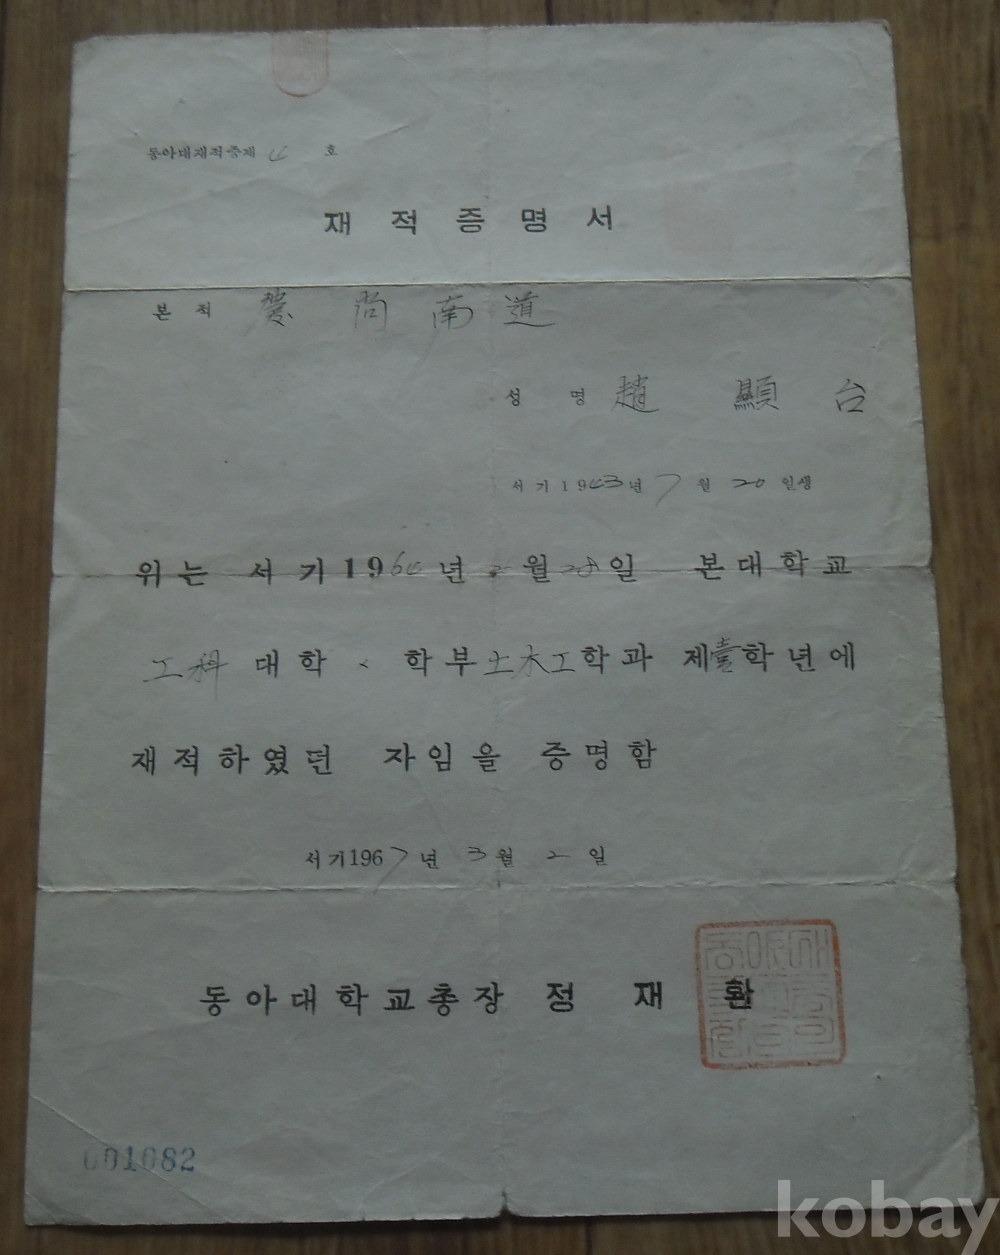 동아대재적증제 4 호
재적증명서
본적 慶尙南道
성명 趙顯台
서기1943년 7월 20일생
위는 서기1964년 월 28일 본대학교
工科대학 학부土木工학과 제壹학년에
재적하였던 자임을 증명함
서기1967년 3월 2일
동아대학교총장 정재환
001082
kobay